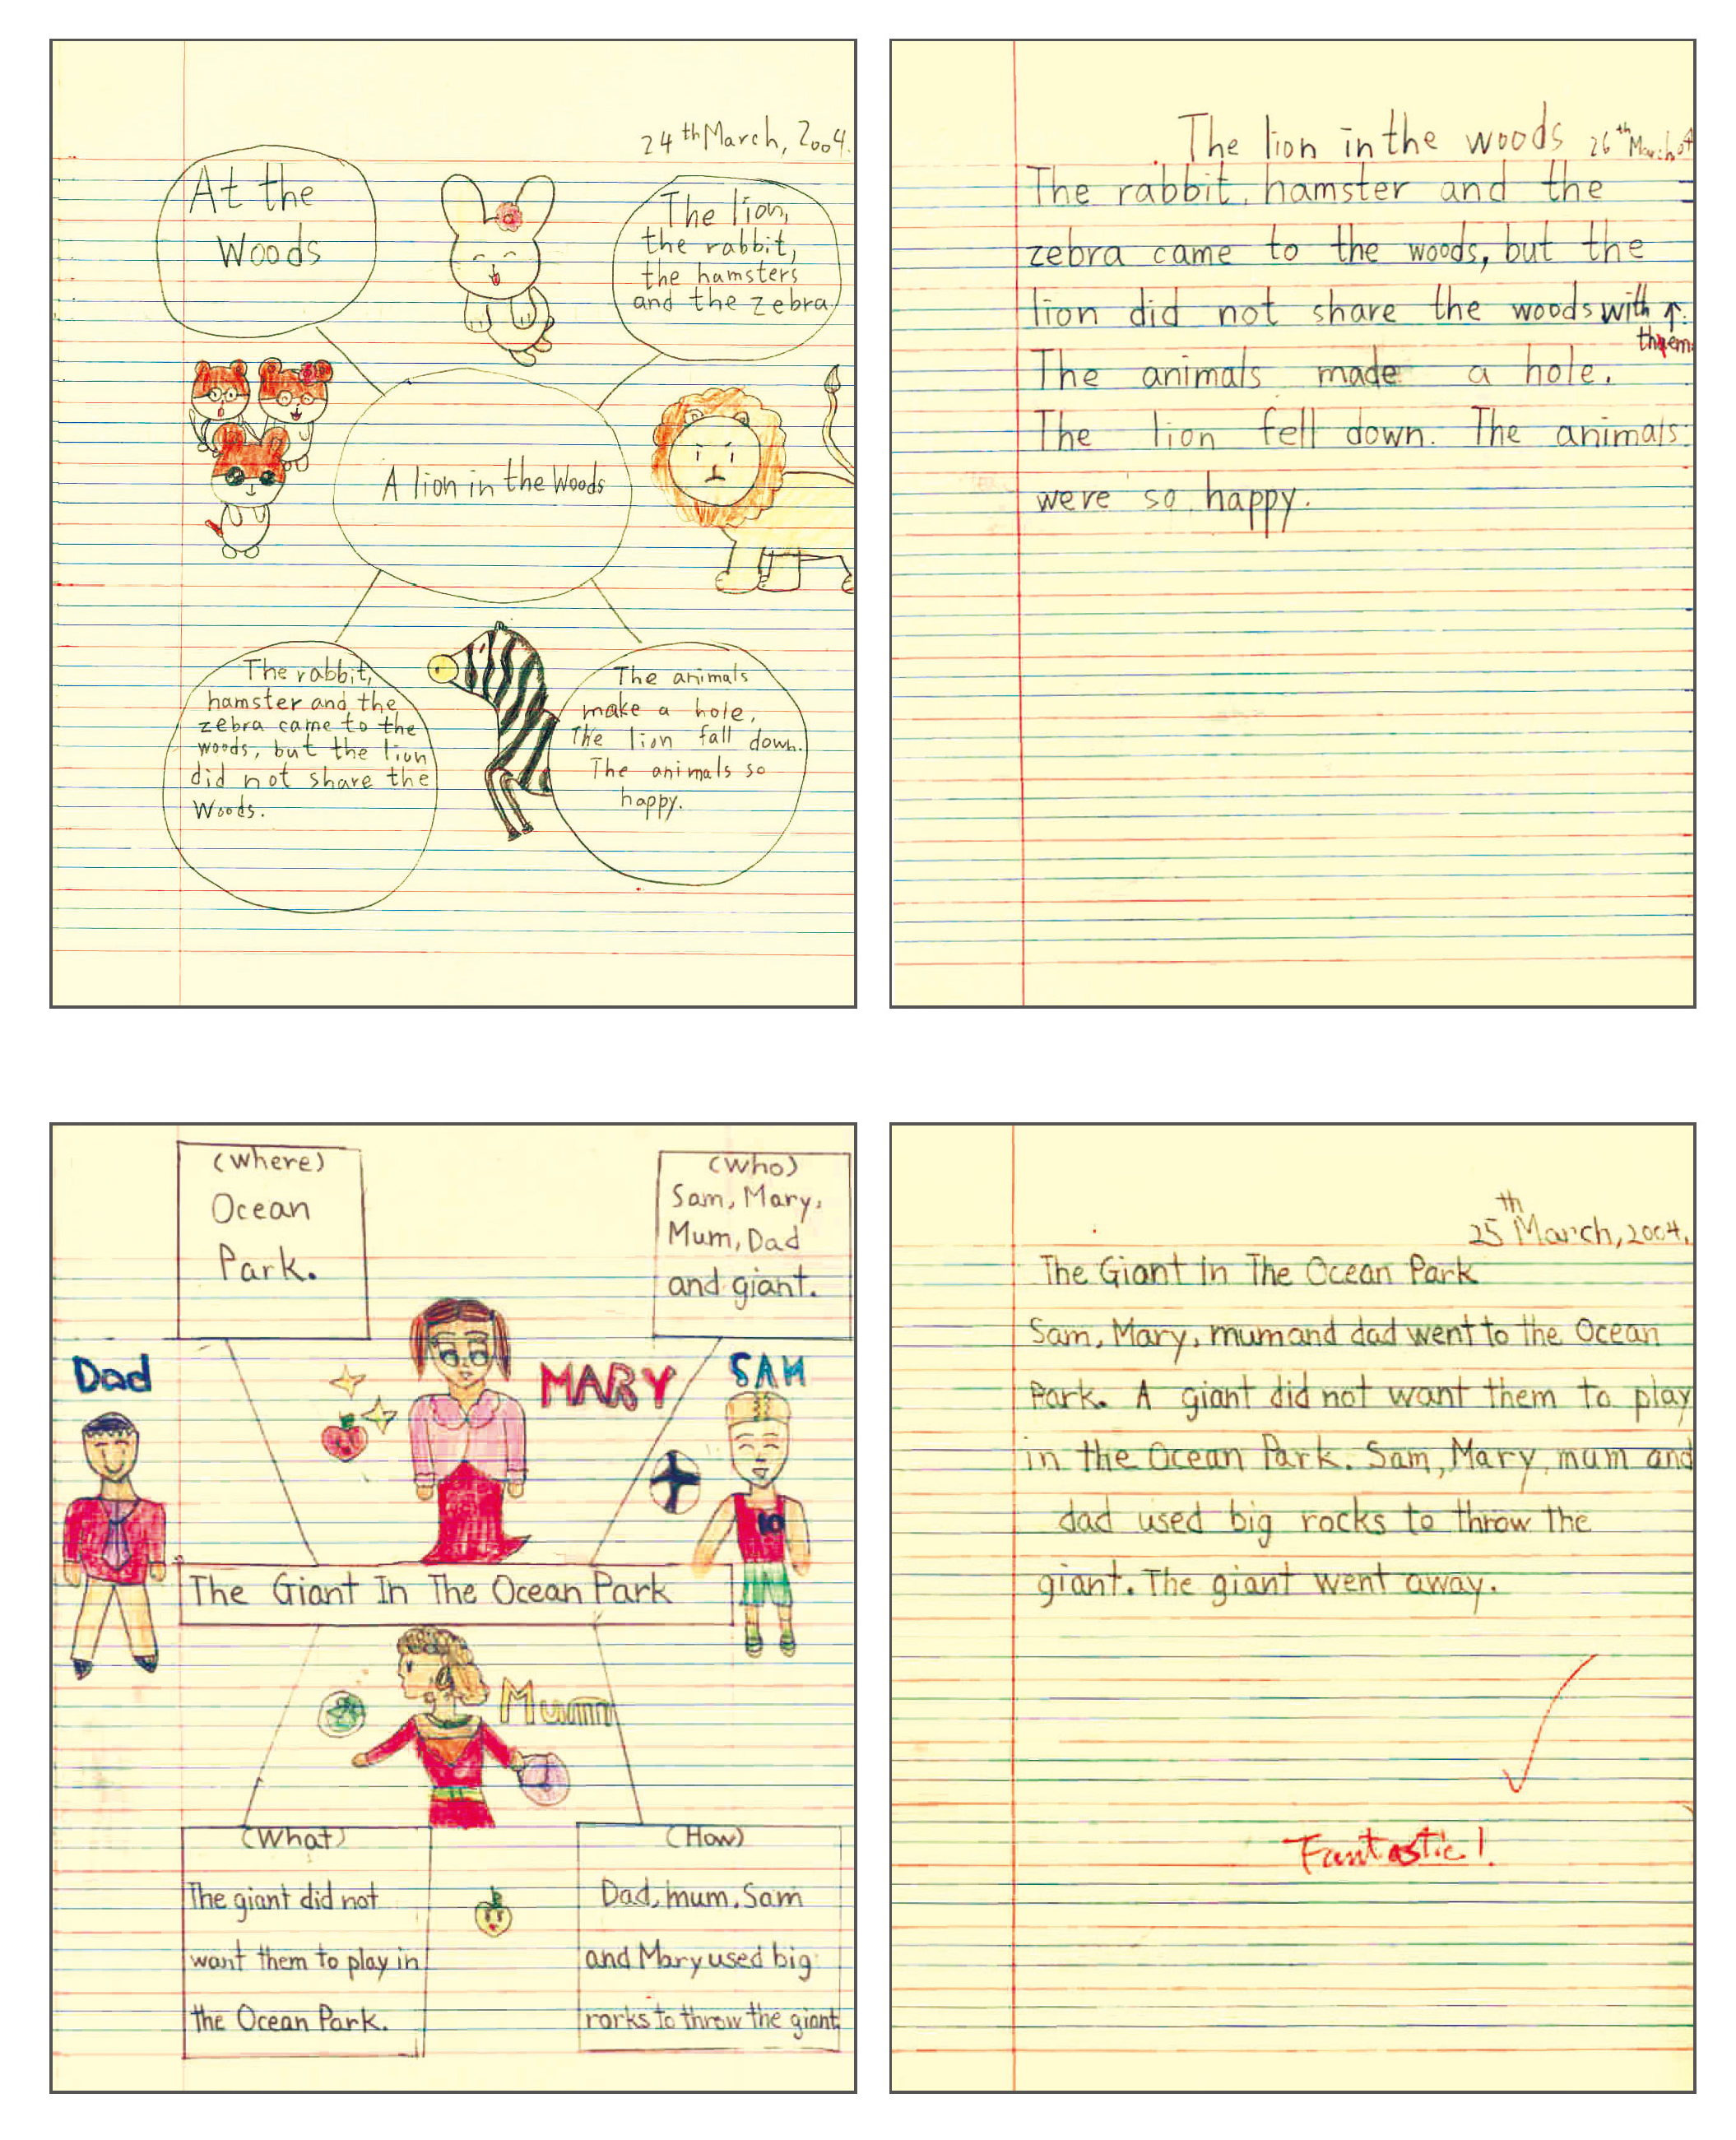 24th March, 2004.
At the
Woods
The lion,
the rabbit,
the hamsters
and the zebra
A lion in the Woods
The rabbit,
hamster and the
zebra came to the
woods, but the lion
did not share the
Woods.
The animals
make a hole,
The lion fall down.
The animals so
happy.
The lion in the woods 26th March 04
The rabbit, hamster and the
zebra came to the woods, but the
lion did not share the woods with ↑.
them
The animals made a hole.
The lion fell down. The animals
were so happy.
(Where)
Ocean
Park.
(Who)
Sam, Mary,
Mum, Dad
and giant.
Dad
MARY
SAM
10
The Giant In The Ocean Park
Mum
(What)
The giant did not
want them to play in
the Ocean Park.
(How)
Dad, mum, Sam
and Mary used big
rorks to throw the giant
25th March, 2004.
The Giant In The Ocean Park
Sam, Mary, mum and dad went to the Ocean
Park. A giant did not want them to play
in the Ocean Park. Sam, Mary, mum and
dad used big rocks to throw the
giant. The giant went away.
Fantastic!